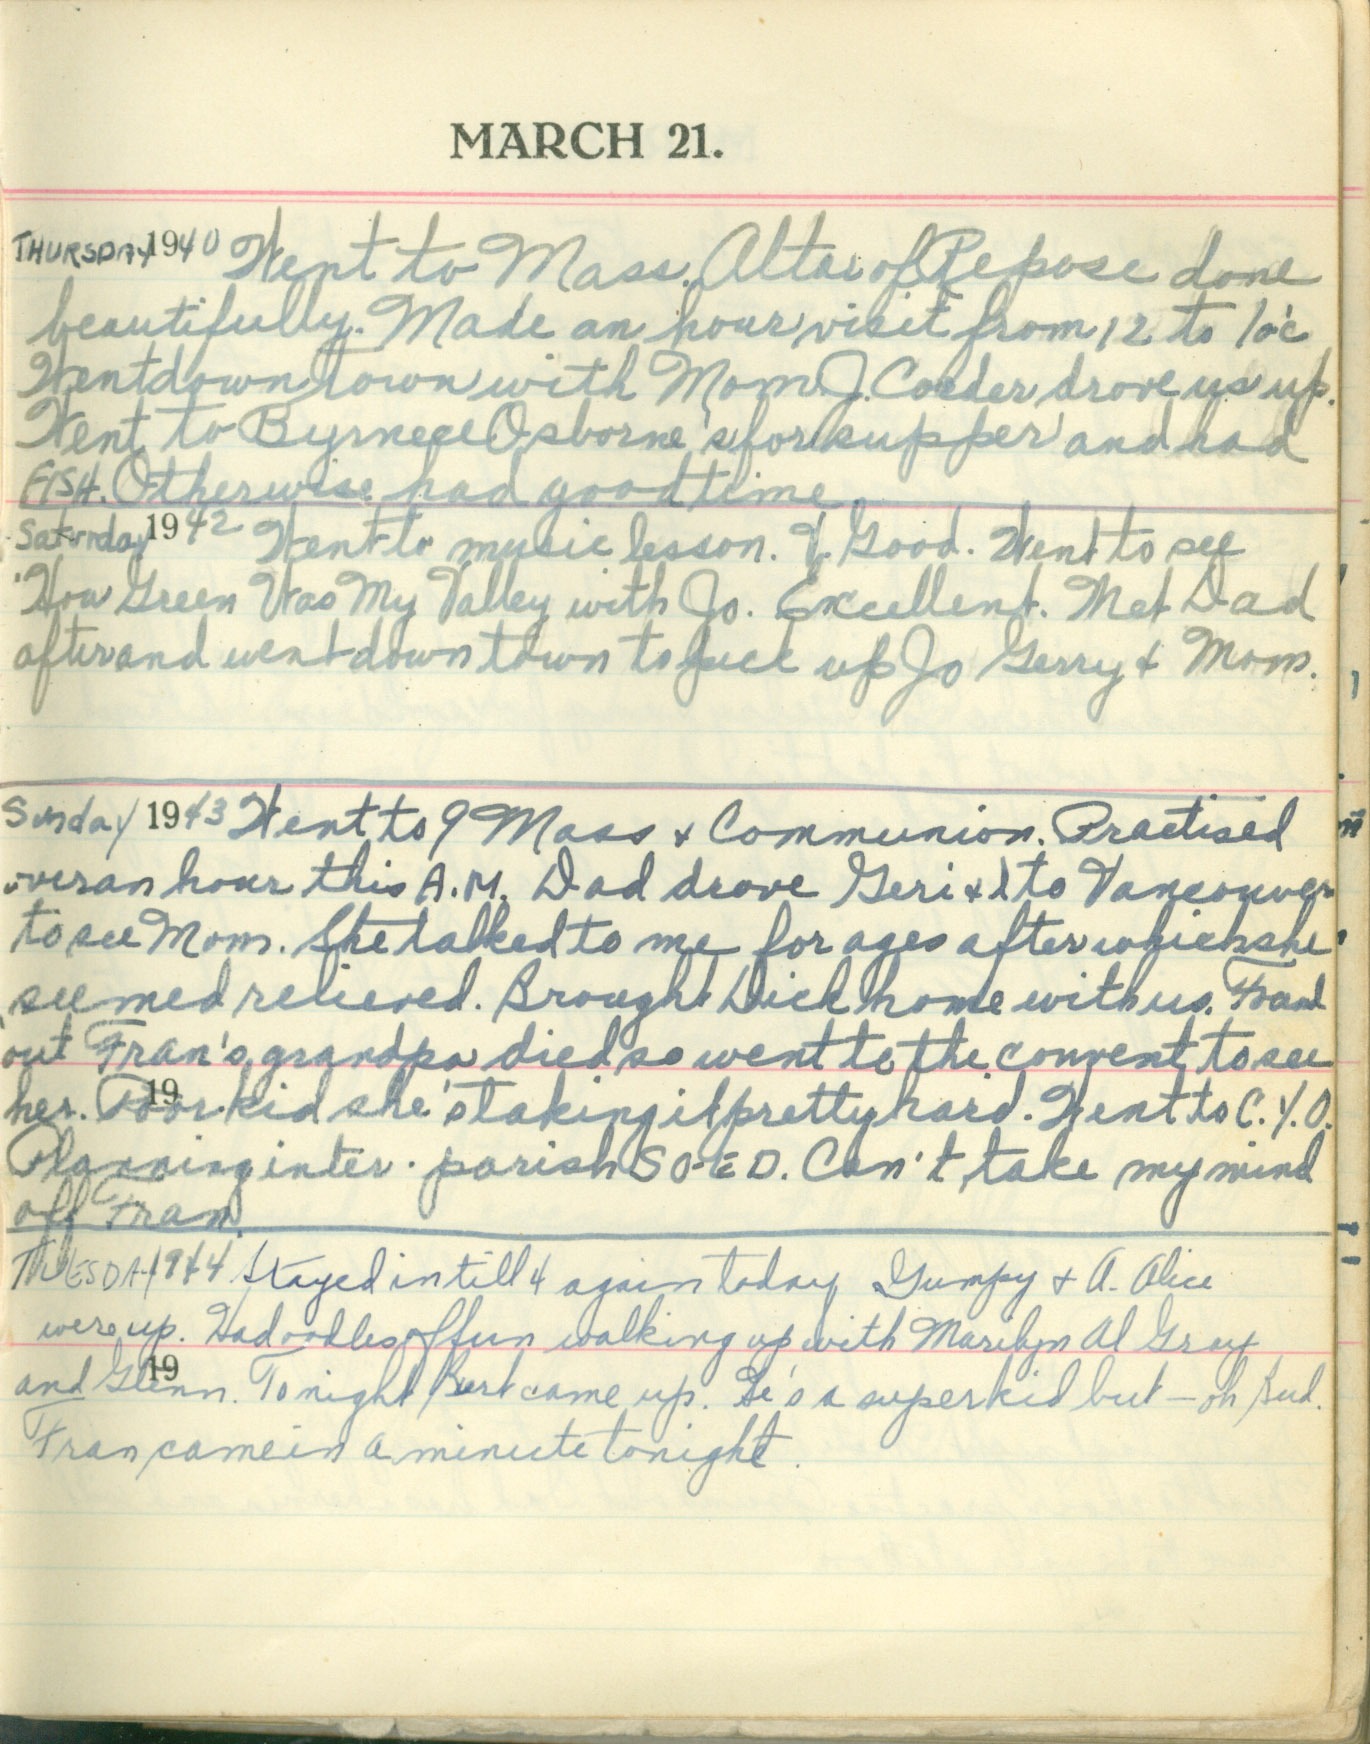 MARCH 21.
THURSDAY 1940 Went to Mass. Altar of Repose done
beautifully. Made an hour visit from 12 to 1 o'c
Went down town with Mom. J. Coeder drove us up.
Went to Byrneece Osborne's for supper and had
FISH. Otherwise had good time.
Saturday 1942 Went to music lesson. V. Good. Went to see
"How Green Was My Valley with Jo. Excellent. Met Dad
after and went down town to pick up Jo Gerry & Mom.
Sunday 1943 Went to 9 Mass & Communion. Practised
over an hour this A.M. Dad drove Geri & I to Vancouver
to see Mom. She talked to me for ages after which she
seemed relieved. Brought Dick home with us. Found
out Fran's grandpa died so went to the convent to see
her. Poor kid she's taking it pretty hard. Went to C.Y.O.
19
Planning inter-parish SO-ED. Can't take my mind
off Fran.
TUESDAY 1944 Stayed in till 4 again today Gumpy & A. Alice
were up. Had oodles of fun walking up with Marilyn Al Gray
and Glenn. Tonight Bert came up. He's a super kid but – oh Bud.
19
Fran came in a minute tonight.